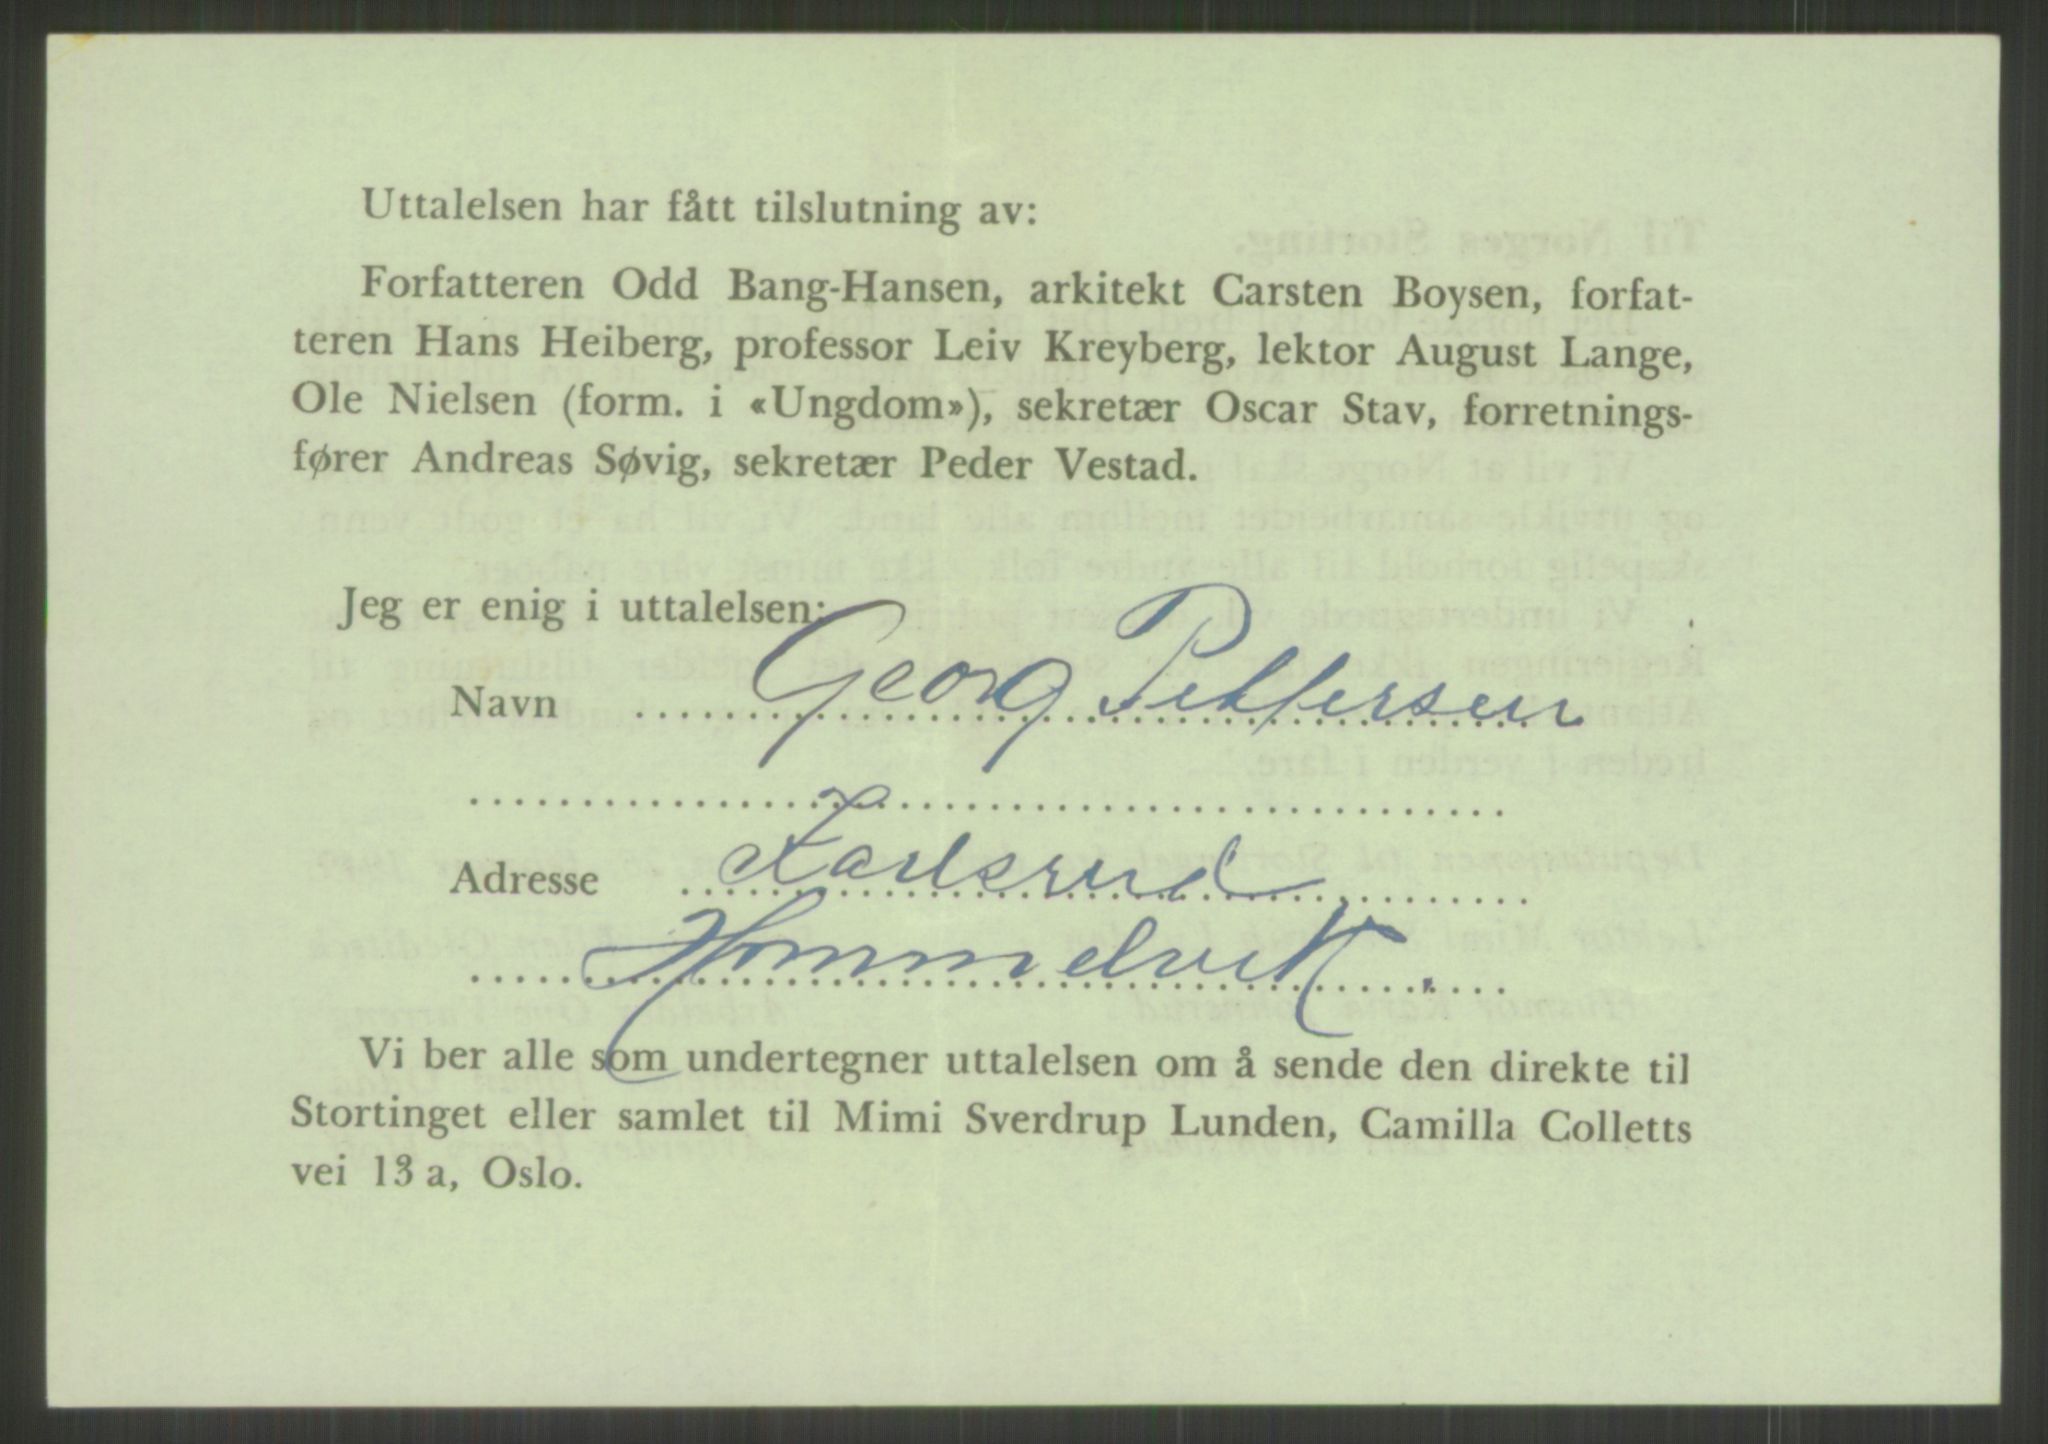 Uttalelsen har fått tilslutning av:
Forfatteren Odd Bang-Hansen, arkitekt Carsten Boysen, forfat-
teren Hans Heiberg, professor Leiv Kreyberg, lektor August Lange,
Ole Nielsen (form. i «Ungdom»), sekretær Oscar Stav, forretnings-
fører Andreas Søvig, sekretær Peder Vestad.
Jeg er enig i uttalelsen:
Navn Georg Pettersen
Adresse Karlsrud
Hommelvik.
Vi ber alle som undertegner uttalelsen om å sende den direkte til
Stortinget eller samlet til Mimi Sverdrup Lunden, Camilla Colletts
vei 13 a, Oslo.